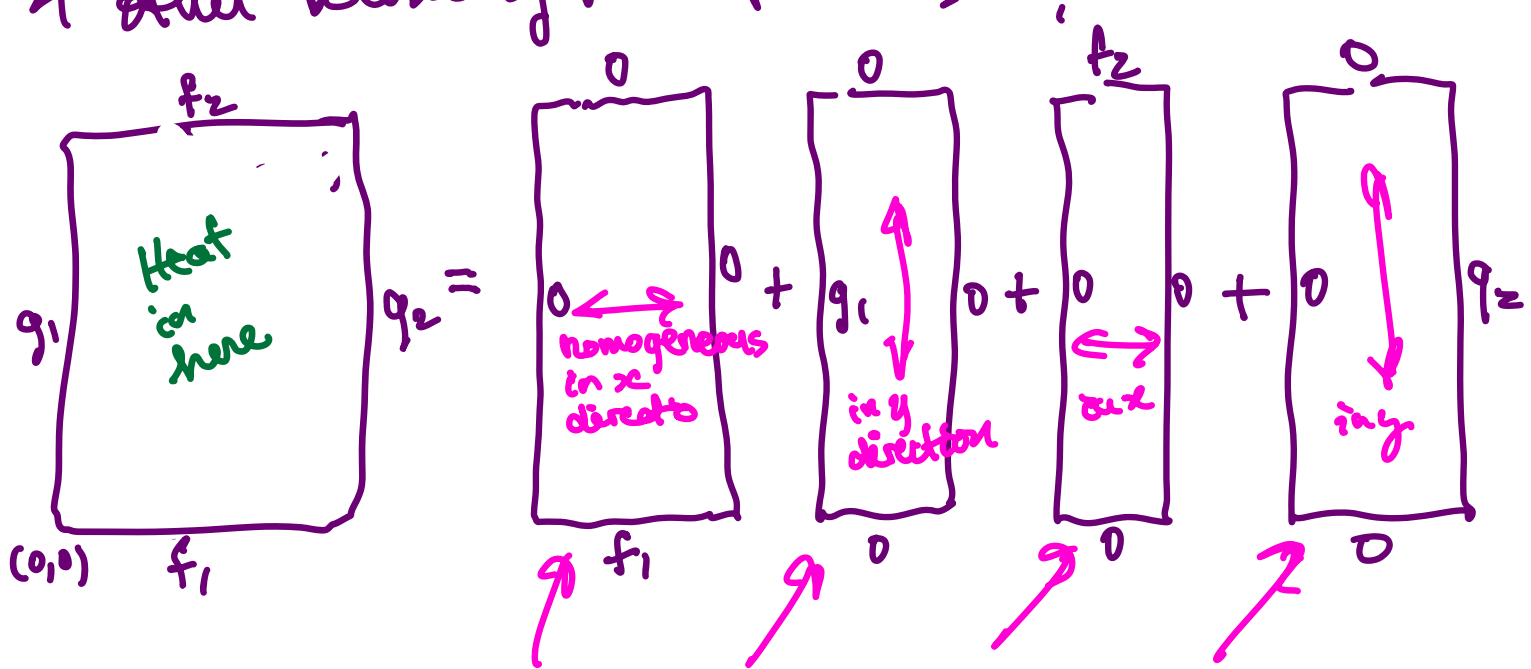 f2
g1
Heat
in
here
g2
(0,0)
f1
=
0
0
0
homogeneous
in x
directo
f1
+
0
g1
0
in y
direction
0
+
f2
0
0
in x
0
+
0
0
g2
in y
0